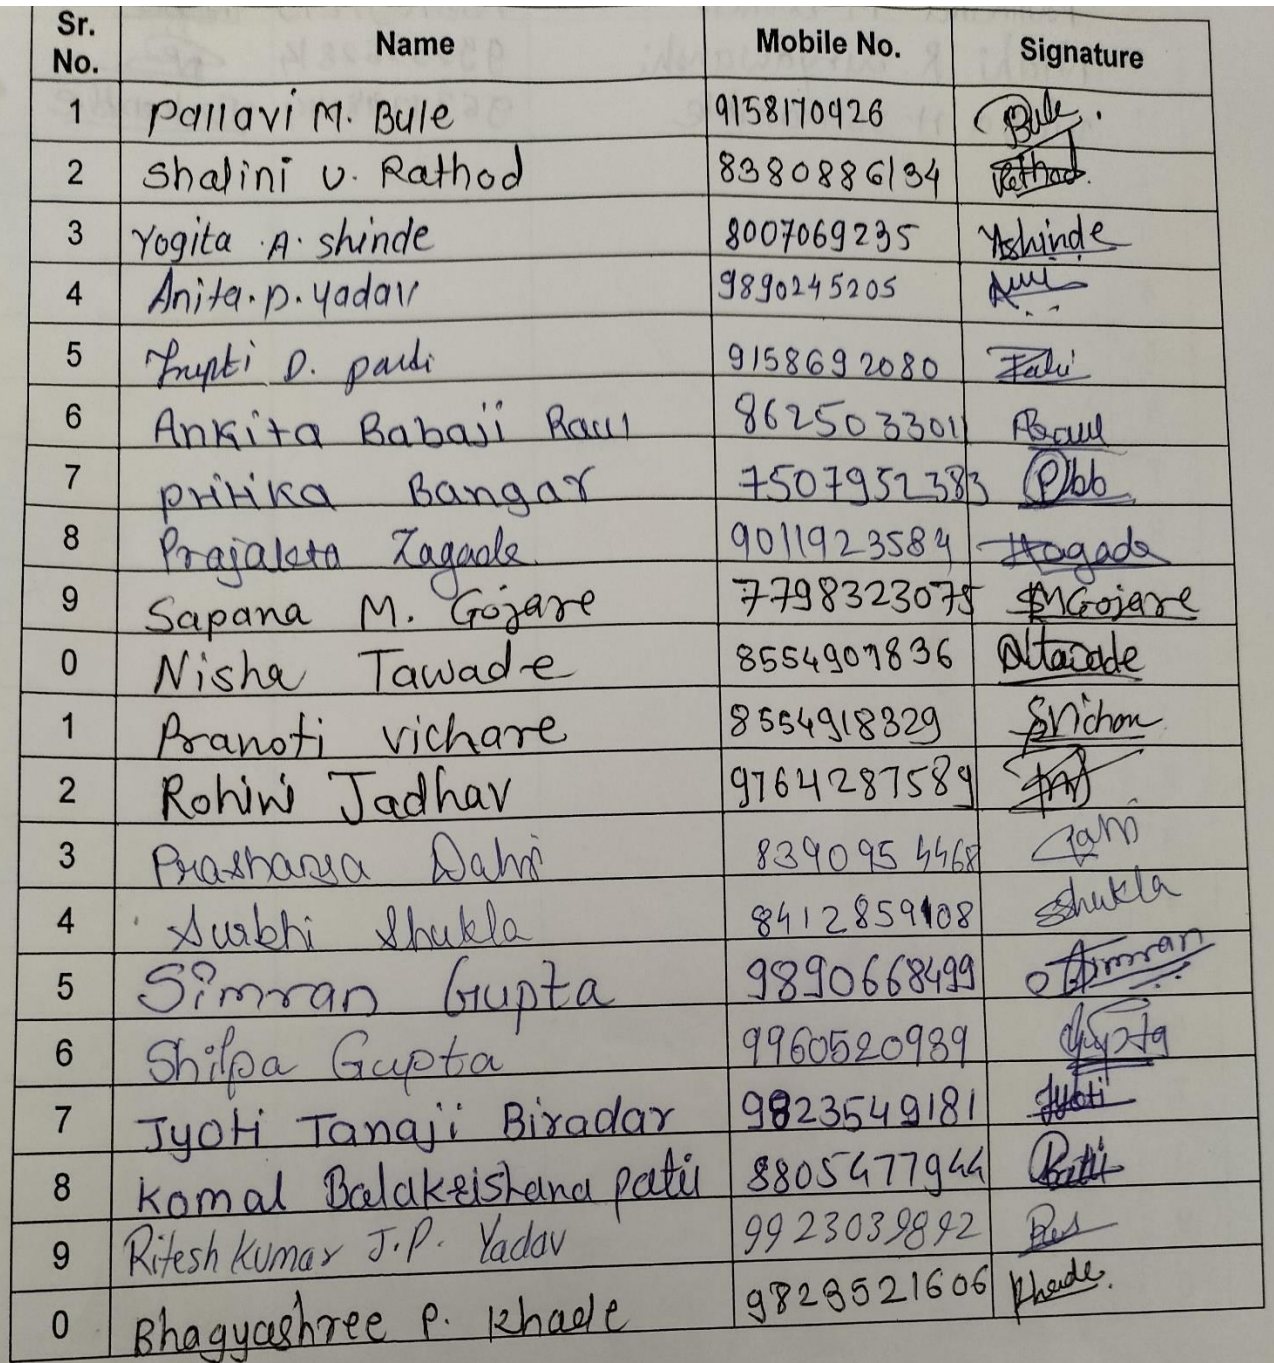 Sr. No. Name Mobile No. Signature
1 Pallavi M. Bule 9158170926 Bule.
2 Shalini U. Rathod 8380886134 Rathod.
3 Yogita A. Shinde 8007069235 YShinde
4 Anita. P. Yadav 9890245205
5 Trupti D. 9158692080
6 Ankita Babaji Raul 8625033011 ABRaul
7 Pritika Bangar 7507952383 Pbb
8 Prajakta Zagade 9011923584 Zagade
9 Sapana M. Gojare 7798323075 SMGojare
0 Nisha Tawade 8554907836
1 Pranoti Vichare 8554918329
2 Rohini Jadhav 9764287589
3 Prashansa Dahri 8390954468
4 Surbhi Shukla 8412859108 SShukla
5 Simran Gupta 9890668499 Simran
6 Shilpa Gupta 9960520989 Gupta
7 Jyoti Tanaji Biradar 9823549181 Jyoti
8 Komal Balakrishana Patil 8805477944 Patil
9 Ritesh Kumar J.P. Yadav 9923039892
0 Bhagyashree P. Khade 9823521606 Khade.